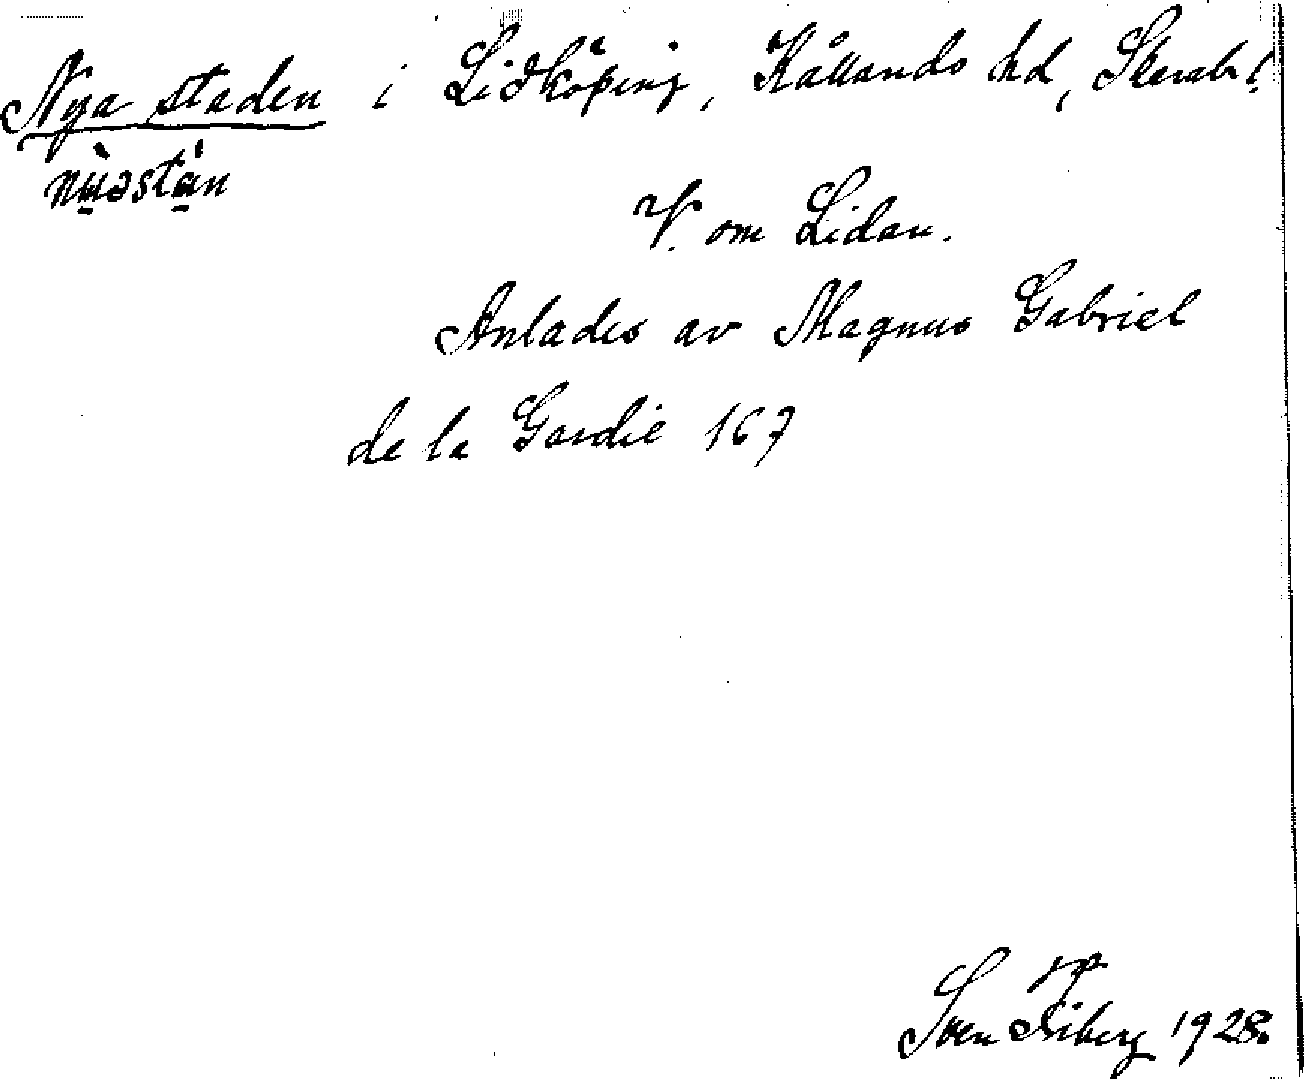 Nya staden i Lidköping, Kållands hd, Skarab. l.
V. om Lidan.
Anlades av Magnus Gabriel
de la Gardie 167
Sven Friberg 1928.